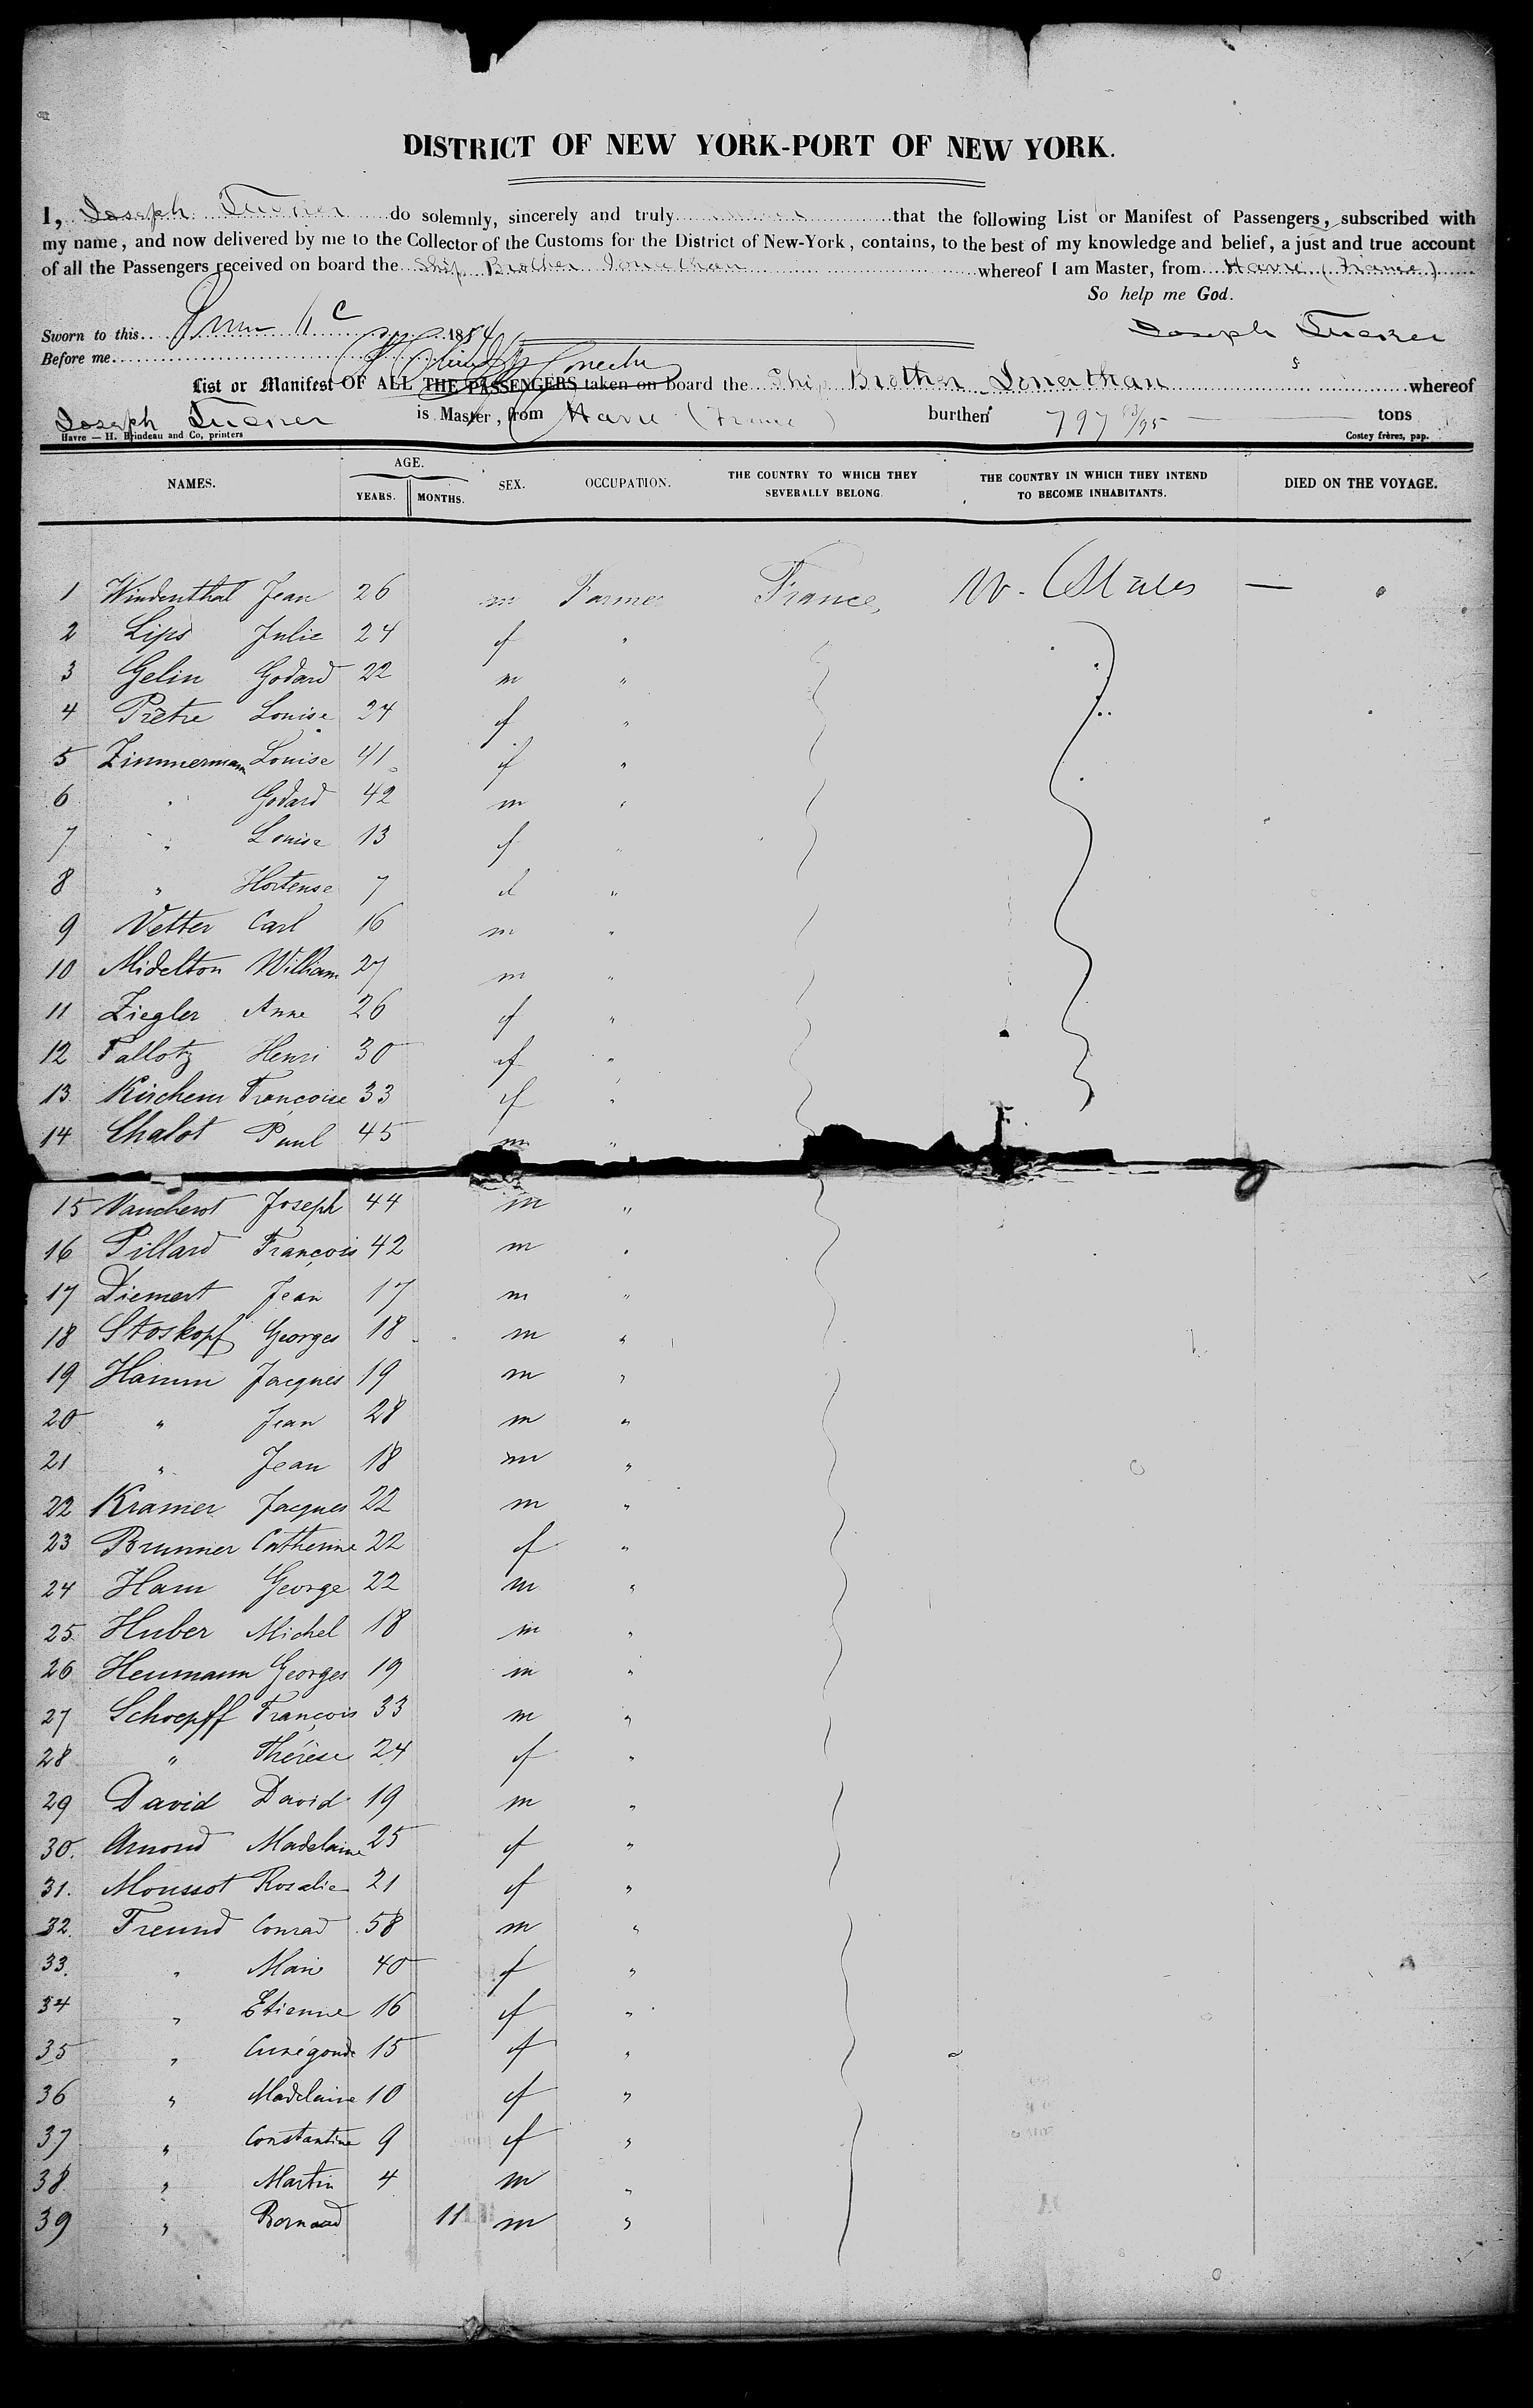 DISTRICT OF NEW YORK-PORT OF NEW YORK.
I, Joseph Tucker do solemnly, sincerely and truly that the following List or Manifest of Passengers, subscribed with
my name, and now delivered by me to the Collector of the Customs for the District of New-York, contains, to the best of my knowledge and belief, a just and true account
of all the Passengers received on board the Ship Brother Jonathan whereof I am Master, from Havre (France)
So help me God.
Sworn to this 1854
Joseph Tucker
Before me
List or Manifest OF ALL THE PASSENGERS taken on board the Ship Brother Jonathan whereof
Joseph Tucker is Master, from Havre (France) burthen 797 83/95 tons
Havre — H. Brindeau and Co, printers Costey frères, pap.
NAMES. AGE. YEARS. MONTHS. SEX. OCCUPATION. THE COUNTRY TO WHICH THEY SEVERALLY BELONG. THE COUNTRY IN WHICH THEY INTEND TO BECOME INHABITANTS. DIED ON THE VOYAGE.
1 Windenthal Jean 26 m Farmer France, States —
2 Lips Julie 24 f "
3 Gelin Godard 22 m "
4 Prêtre Louise 24 f "
5 Zimmermann Louise 41 f "
6 " Godard 42 m "
7 " Louise 13 f "
8 " Hortense 7 f "
9 Vetter Carl 16 m "
10 Midelton William 27 m "
11 Ziegler Anne 26 f "
12 Fallotz Henri 30 f "
13 Kirchem Françoise 33 f "
14 Chalot Paul 45 m "
15 Vaucherot Joseph 44 m "
16 Pillard François 42 m "
17 Diemert Jean 17 m "
18 Stoskopf Georges 18 m "
19 Hamm Jacques 19 m "
20 " Jean 28 m "
21 " Jean 18 m "
22 Kramer Jacques 22 m "
23 Brunner Catherine 22 f "
24 Ham George 22 m "
25 Huber Michel 18 m "
26 Heumann Georges 19 m "
27 Schoepff François 33 m "
28 " Thérèse 24 f "
29 David David 19 m "
30. Arnond Madelaine 25 f "
31. Moussot Rosalie 21 f "
32. Freund Conrad 58 m "
33. " Marie 40 f "
34 " Etienne 16 f "
35 " Cunégonde 15 f "
36 " Madelaine 10 f "
37 " Constantine 9 f "
38 " Martin 4 m "
39 " Bernard 11 m "